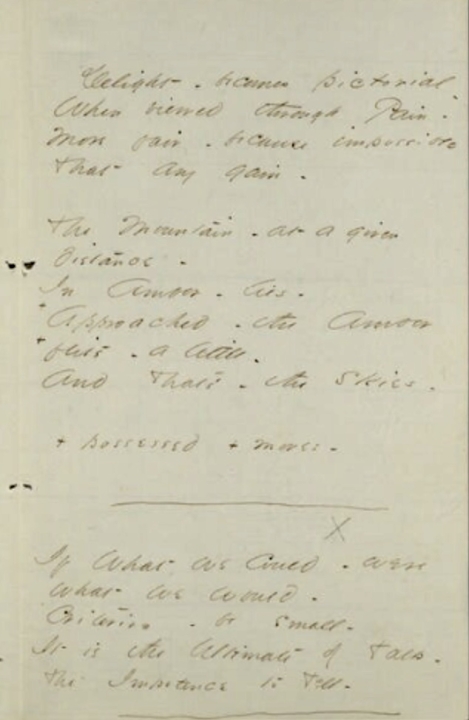 Delight - becomes pictorial
When viewed through Pain -
More fair - because impossible
That any gain -
The Mountain - at a given
Distance -
In Amber - lies -
+ Approached - the Amber
+ flits - a little -
And That's - the Skies -
+ possessed + moves -
X
If What we Could - were
what we would -
Criterion - be small -
It is the Ultimate of Talk -
The Impotence to Tell -